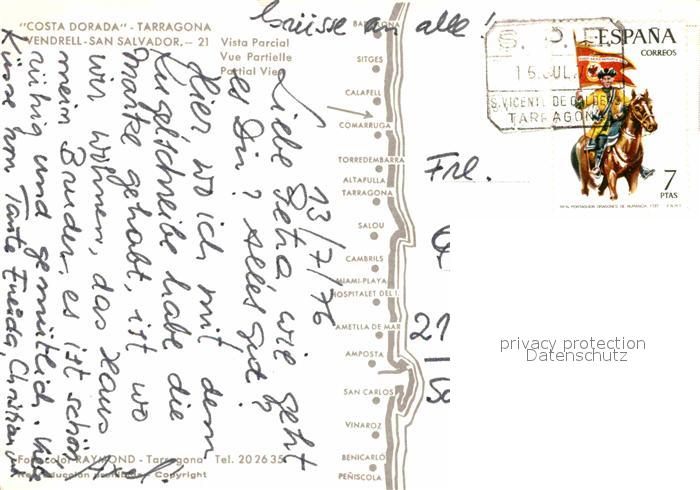 "COSTA DORADA" - TARRAGONA
VENDRELL - SAN SALVADOR. - 21
Vista Parcial
Vue Partielle
Partial View
Grüsse an alle!
13/7/76
Liebe Petra, wie geht
es Dir? Alles gut?
Hier wo ich mit dem
Kugelschreibe habe die
Marke gehabt, ist wo
wir wohnen, das Haus
meim Bruder, es ist schön
ruhig und gemütlich. Viele
Küsse von Tante Eneida, Christian und
Axel.
BARCELONA
SITGES
CALAFELL
COMARRUGA
TORREDEMBARRA
ALTAFULLA
TARRAGONA
SALOU
CAMBRILS
MIAMI-PLAYA
HOSPITALET DEL I.
AMETLLA DE MAR
AMPOSTA
SAN CARLOS
VINAROZ
BENICARLÓ
PEÑISCOLA
Fotocolor RAYMOND - Tarragona Tel. 20 26 35
Reproducción prohibida - Copyright
16 JUL
S. VICENTE DE CALDERS
TARRAGONA
ESPAÑA
CORREOS
7
PTAS
REAL PORTAGUION DRAGONES DE NUMANCIA, 1737 F.N.M.T.
Frl.
21
privacy protection
Datenschutz